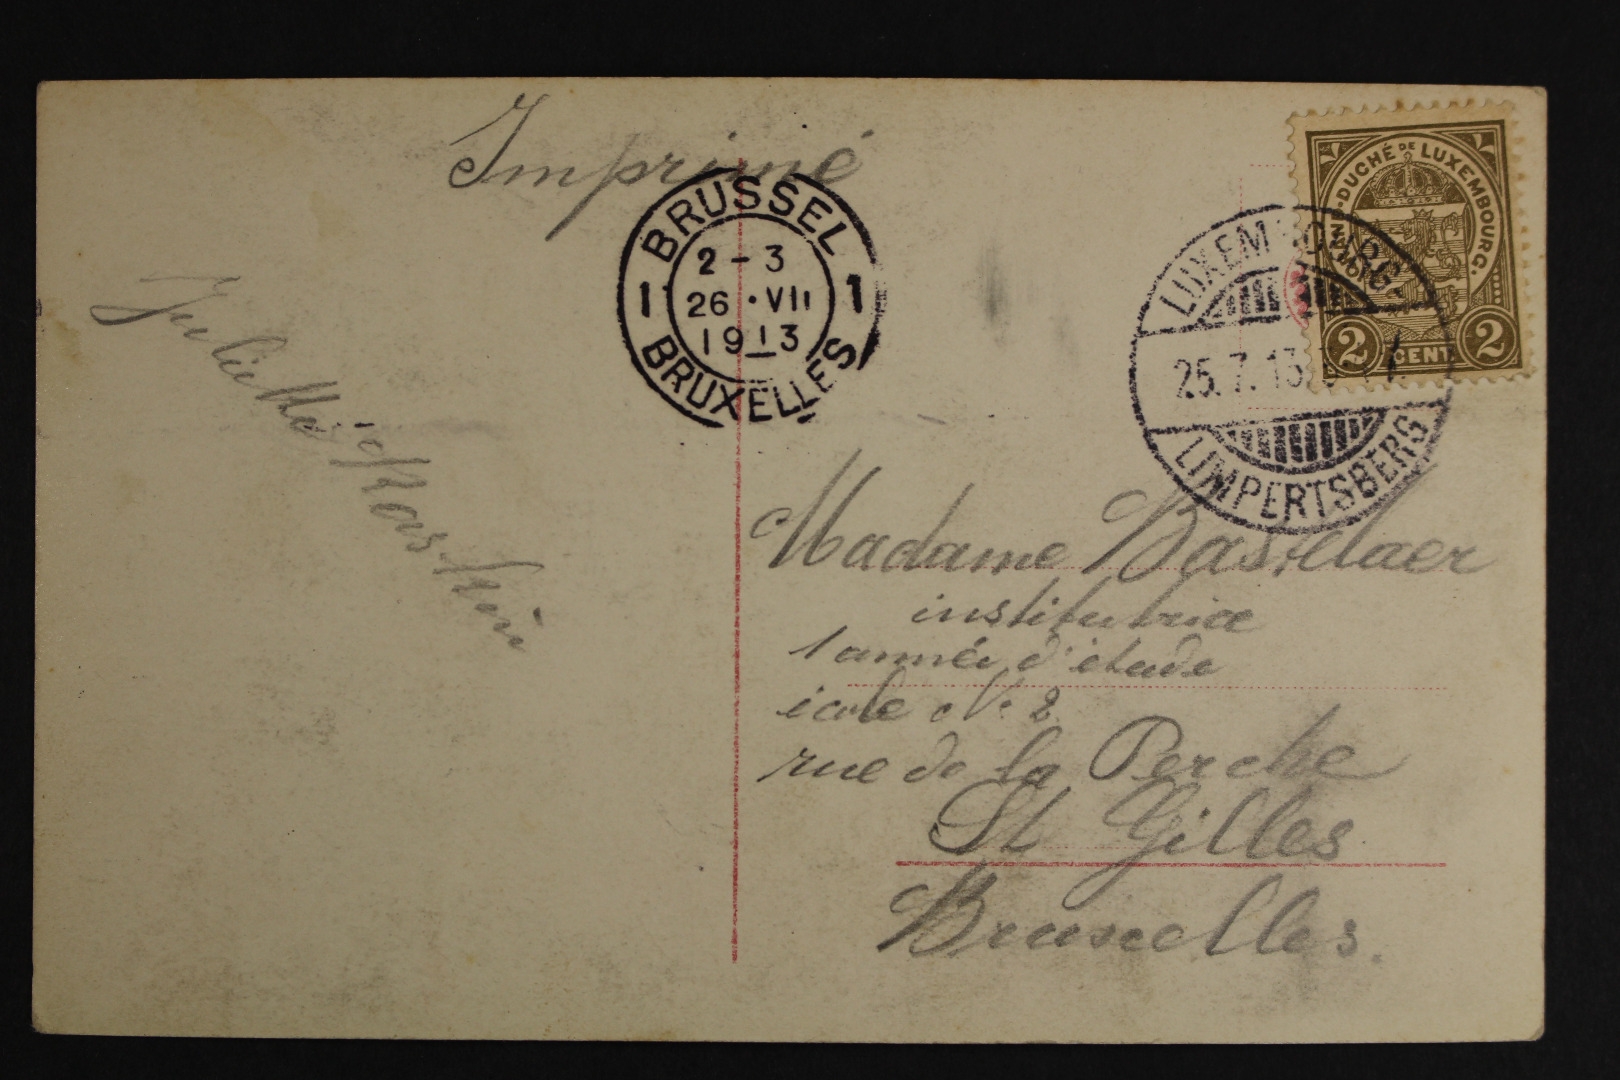 Imprimé
BRUSSEL
2-3
26 · VII
1913
1 1
BRUXELLES
GRAND-DUCHÉ DE LUXEMBOURG.
2 CENT. 2
LUXEMBOURG
25.7.13.
LIMPERTSBERG
Juliette
Madame Bastelaer
institutrice
1 année d'étude
école No 2
rue de la Perche
St Gilles
Bruxelles.